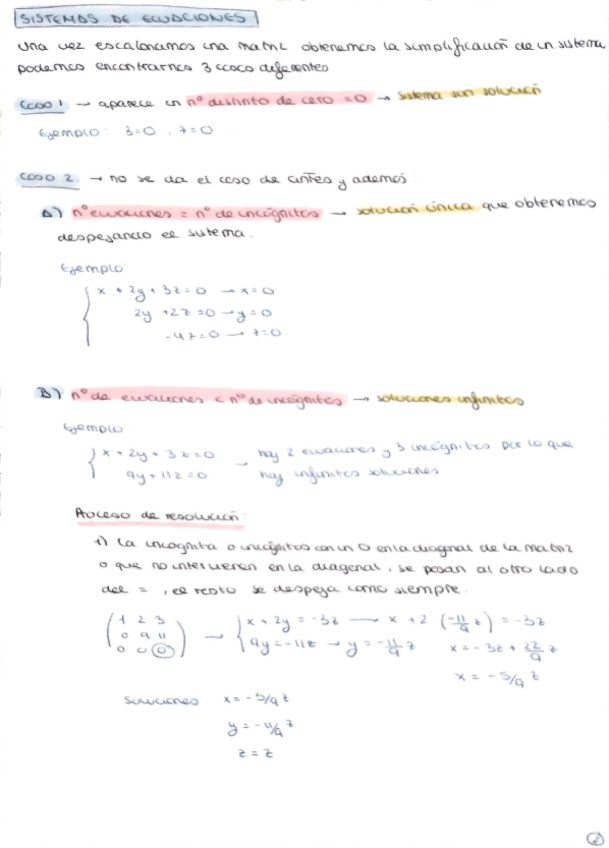 SISTEMAS DE ECUACIONES
Una vez escalonamos una matriz obtenemos la simplificación de un sistema
podemos encontrarnos 3 casos diferentes
Caso 1 → aparece un nº distinto de cero = 0 → sistema sin solución
Ejemplo: 3=0, 7=0
Caso 2 → no se da el caso de antes y además
A) nº ecuaciones = nº de incógnitas → solución única que obtenemos
despejando el sistema.
Ejemplo:
x + 2y + 3z = 0 → x = 0
2y + 2z = 0 → y = 0
-4z = 0 → z = 0
B) nº de ecuaciones < nº de incógnitas → soluciones infinitas
Ejemplo
x + 2y + 3z = 0 → hay 2 ecuaciones y 3 incógnitas por lo que
9y + 11z = 0 hay infinitas soluciones
Proceso de resolución:
1) La incognita o incógnitas con un 0 en la diagonal de la matriz
o que no intervienen en la diagonal, se pasan al otro lado
del =, el resto se despeja como siempre.
1 2 3 → x + 2y = -3z → x + 2 (-11/9 z) = -3z
0 9 11 9y = -11z → y = -11/9 z x = -3z + 22/9 z
0 0 0 x = -5/9 z
Soluciones x = -5/9 z
y = -11/9 z
z = z
2